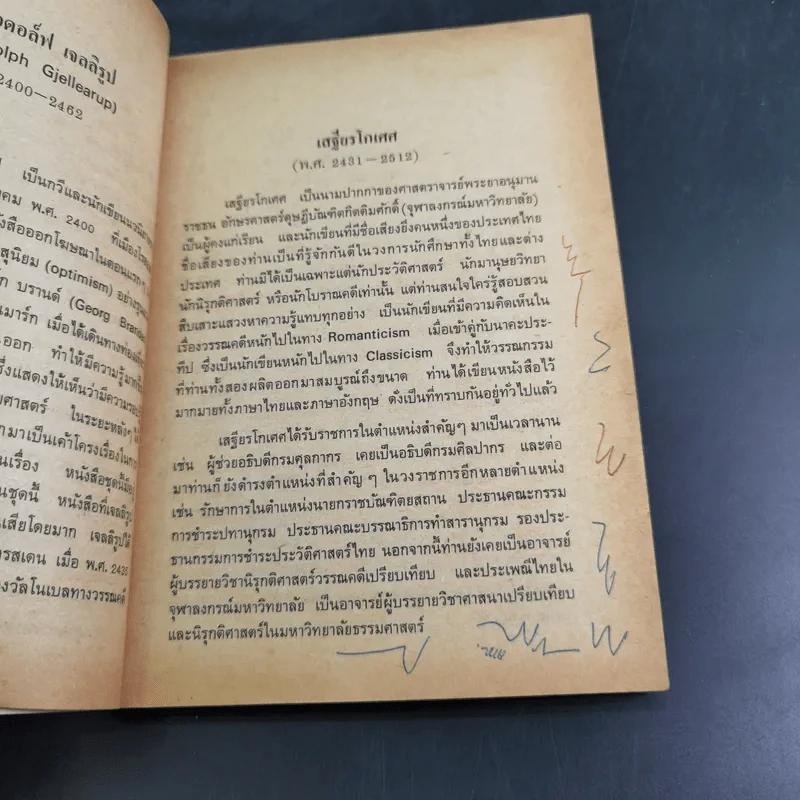 วดอล์ฟ เจลลิรูป
olph Gjellearup)
2400—2462
เป็นกวีและนักเขียน
คม พ.ศ. 2400 ที่เมือง
สือออกโฆษณาในตอนแรก
สุนิยม (optimism) อย่าง
ก บรานด์ (Georg
นมาร์ก เมื่อได้เดินทาง
ออก ทำให้มีความรู้
ซึ่งแสดงให้เห็นว่ามีความ
ศาสตร์ ในระยะหลังๆ
มาเป็นเค้าโครงเรื่องใน
นเรื่อง หนังสือชุดนี้
นชุดนี้ หนังสือที่เจลลิรูป
นเสียโดยมาก เจลลิรูปได้
รสเดน เมื่อ พ.ศ. 2435
งวัลโนเบลทางวรรณคดี
เสฐียรโกเศศ
(พ.ศ. 2431—2512)
เสฐียรโกเศศ เป็นนามปากกาของศาสตราจารย์พระยาอนุมาน
ราชธน อักษรศาสตร์ดุษฎีบัณฑิตกิตติมศักดิ์ (จุฬาลงกรณ์มหาวิทยาลัย)
เป็นผู้คงแก่เรียน และนักเขียนที่มีชื่อเสียงยิ่งคนหนึ่งของประเทศไทย
ชื่อเสียงของท่านเป็นที่รู้จักกันดีในวงการนักศึกษาทั้งไทยและต่าง
ประเทศ ท่านมิได้เป็นเฉพาะแต่นักประวัติศาสตร์ นักมานุษยวิทยา
นักนิรุกติศาสตร์ หรือนักโบราณคดีเท่านั้น แต่ท่านสนใจใคร่รู้สอบสวน
สืบเสาะแสวงหาความรู้แทบทุกอย่าง เป็นนักเขียนที่มีความคิดเห็นใน
เรื่องวรรณคดีหนักไปในทาง Romanticism เมื่อเข้าคู่กับนาคะประ-
ทีป ซึ่งเป็นนักเขียนหนักไปในทาง Classicism จึงทำให้วรรณกรรม
ที่ท่านทั้งสองผลิตออกมาสมบูรณ์ถึงขนาด ท่านได้เขียนหนังสือไว้
มากมายทั้งภาษาไทยและภาษาอังกฤษ ดังเป็นที่ทราบกันอยู่ทั่วไปแล้ว
เสฐียรโกเศศได้รับราชการในตำแหน่งสำคัญๆ มาเป็นเวลานาน
เช่น ผู้ช่วยอธิบดีกรมศุลกากร เคยเป็นอธิบดีกรมศิลปากร และต่อ
มาท่านก็ยังดำรงตำแหน่งที่สำคัญ ๆ ในวงราชการอีกหลายตำแหน่ง
เช่น รักษาการในตำแหน่งนายกราชบัณฑิตยสถาน ประธานคณะกรรม
การชำระปทานุกรม ประธานคณะบรรณาธิการทำสารานุกรม รองประ-
ธานกรรมการชำระประวัติศาสตร์ไทย นอกจากนี้ท่านยังเคยเป็นอาจารย์
ผู้บรรยายวิชานิรุกติศาสตร์วรรณคดีเปรียบเทียบ และประเพณีไทยใน
จุฬาลงกรณ์มหาวิทยาลัย เป็นอาจารย์ผู้บรรยายวิชาศาสนาเปรียบเทียบ
และนิรุกติศาสตร์ในมหาวิทยาลัยธรรมศาสตร์